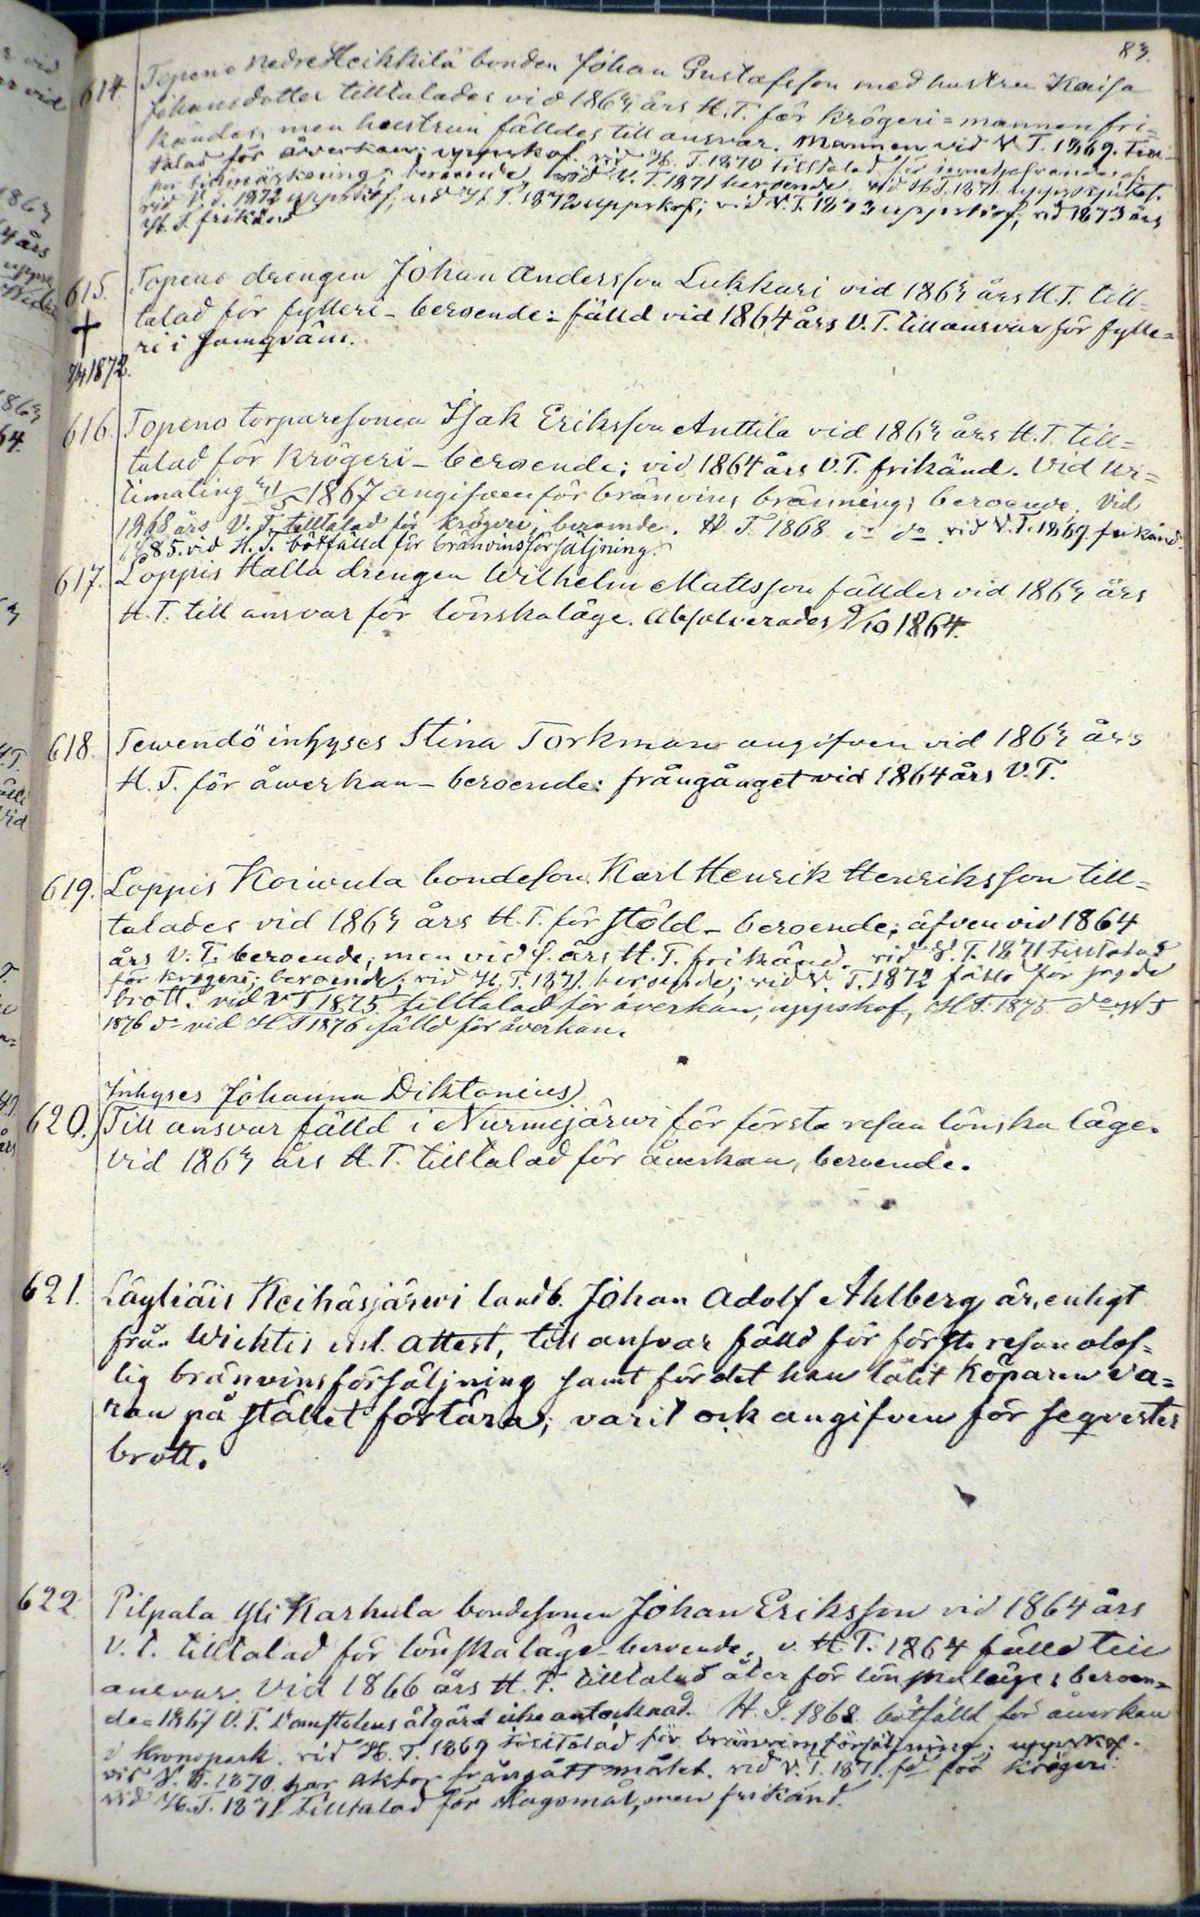 83.
614. Topeno Nedre Heikkilä bonden Johan Gustafsson med hustru Kaisa
Johansdotter tilltalades vid 1863 års H.T. för krögeri = mannen fri=
kändes, men hustrun fälldes till ansvar. Mannen vid V.T. 1869 till=
talad för åverkan, uppskof. vid H.T. 1870 tilltalad för
beroende vid V.T. 1871 beroende vid H.T. 1871 uppskjutet.
vid V.T. 1872 uppskof, vid H.T. 1872 uppskof; vid V.T. 1873 uppskof; vid 1873 års
H.T. frikänd
615. Topeno drengen Johan Andersson Lukkari vid 1863 års H.T. till=
talad för fylleri - beroende: fälld vid 1864 års V.T. till ansvar för fylle=
ri i samqväm.
† 1872.
616. Topeno torparesonen Isak Eriksson Anttila vid 1863 års H.T. till=
talad för krögeri - beroende; vid 1864 års V.T. frikänd. Vid ur=
tima ting 1867 angifven för bränvins bränning; beroende. Vid
1868 års V.T. tilltalad för krögeri, beroende. H.T. 1868 do do vid V.T. 1869 frikänd.
1885. vid H.T. bötfälld för bränvinsförsäljning.
617. Loppis Halla drengen Wilhelm Mattsson fälldes vid 1863 års
H.T. till ansvar för lönskaläge. Absolverades 9/10 1864.
618. Tewendö inhyses Stina Torkman angifven vid 1863 års
H.T. för åwerkan - beroende: frångånget vid 1864 års V.T.
619. Loppis Koiwula bondeson Karl Henrik Henriksson till=
talades vid 1863 års H.T. för stöld - beroende; äfven vid 1864
års V.T. beroende, men vid s. års H.T. frikänd. vid V.T. 1871 tilltalad
för krögeri; beroende; vid H.T. 1871 beroende; vid V.T. 1872 fälld för sagde
brott. vid VT 1875 tilltalad för åverkan, uppskof, HT. 1875 do VT
1876 do vid HT 1876 fälld för åverkan.
Inhyses Johanna Diktonius
620. Till ansvar fälld i Nurmijärwi för första resan lönska läge.
Vid 1863 års H.T. tilltalad för åverkan, beroende.
621. Läyliäis Keihäsjärwi landb. Johan Adolf Ahlberg är, enligt
från Wichtis inl. attest, till ansvar fälld för första resan olof=
lig bränvinsförsäljning samt för det han låtit köparen va=
ran på stället förtära; varit ock angifven för seqvester
brott.
622. Pilpala Yli Karhula bondesonen Johan Eriksson vid 1864 års
V.T. tilltalad för lönskaläge beroende, v. H.T. 1864 fälld till
ansvar. Vid 1866 års H.T. tilltalad åter för lönskaläge; beroen=
de = 1867 V.T. Domstolens åtgärd icke antecknad. H.T. 1868 bötfälld för åwerkan
å kronopark. vid H.T. 1869 tilltalad för bränvinsförsäljning; uppskof.
vid V.T. 1870 har aktor frångått målet. vid V.T. 1871 för krögeri
vid H.T. 1871 tilltalad för slagsmål, men frikänd.